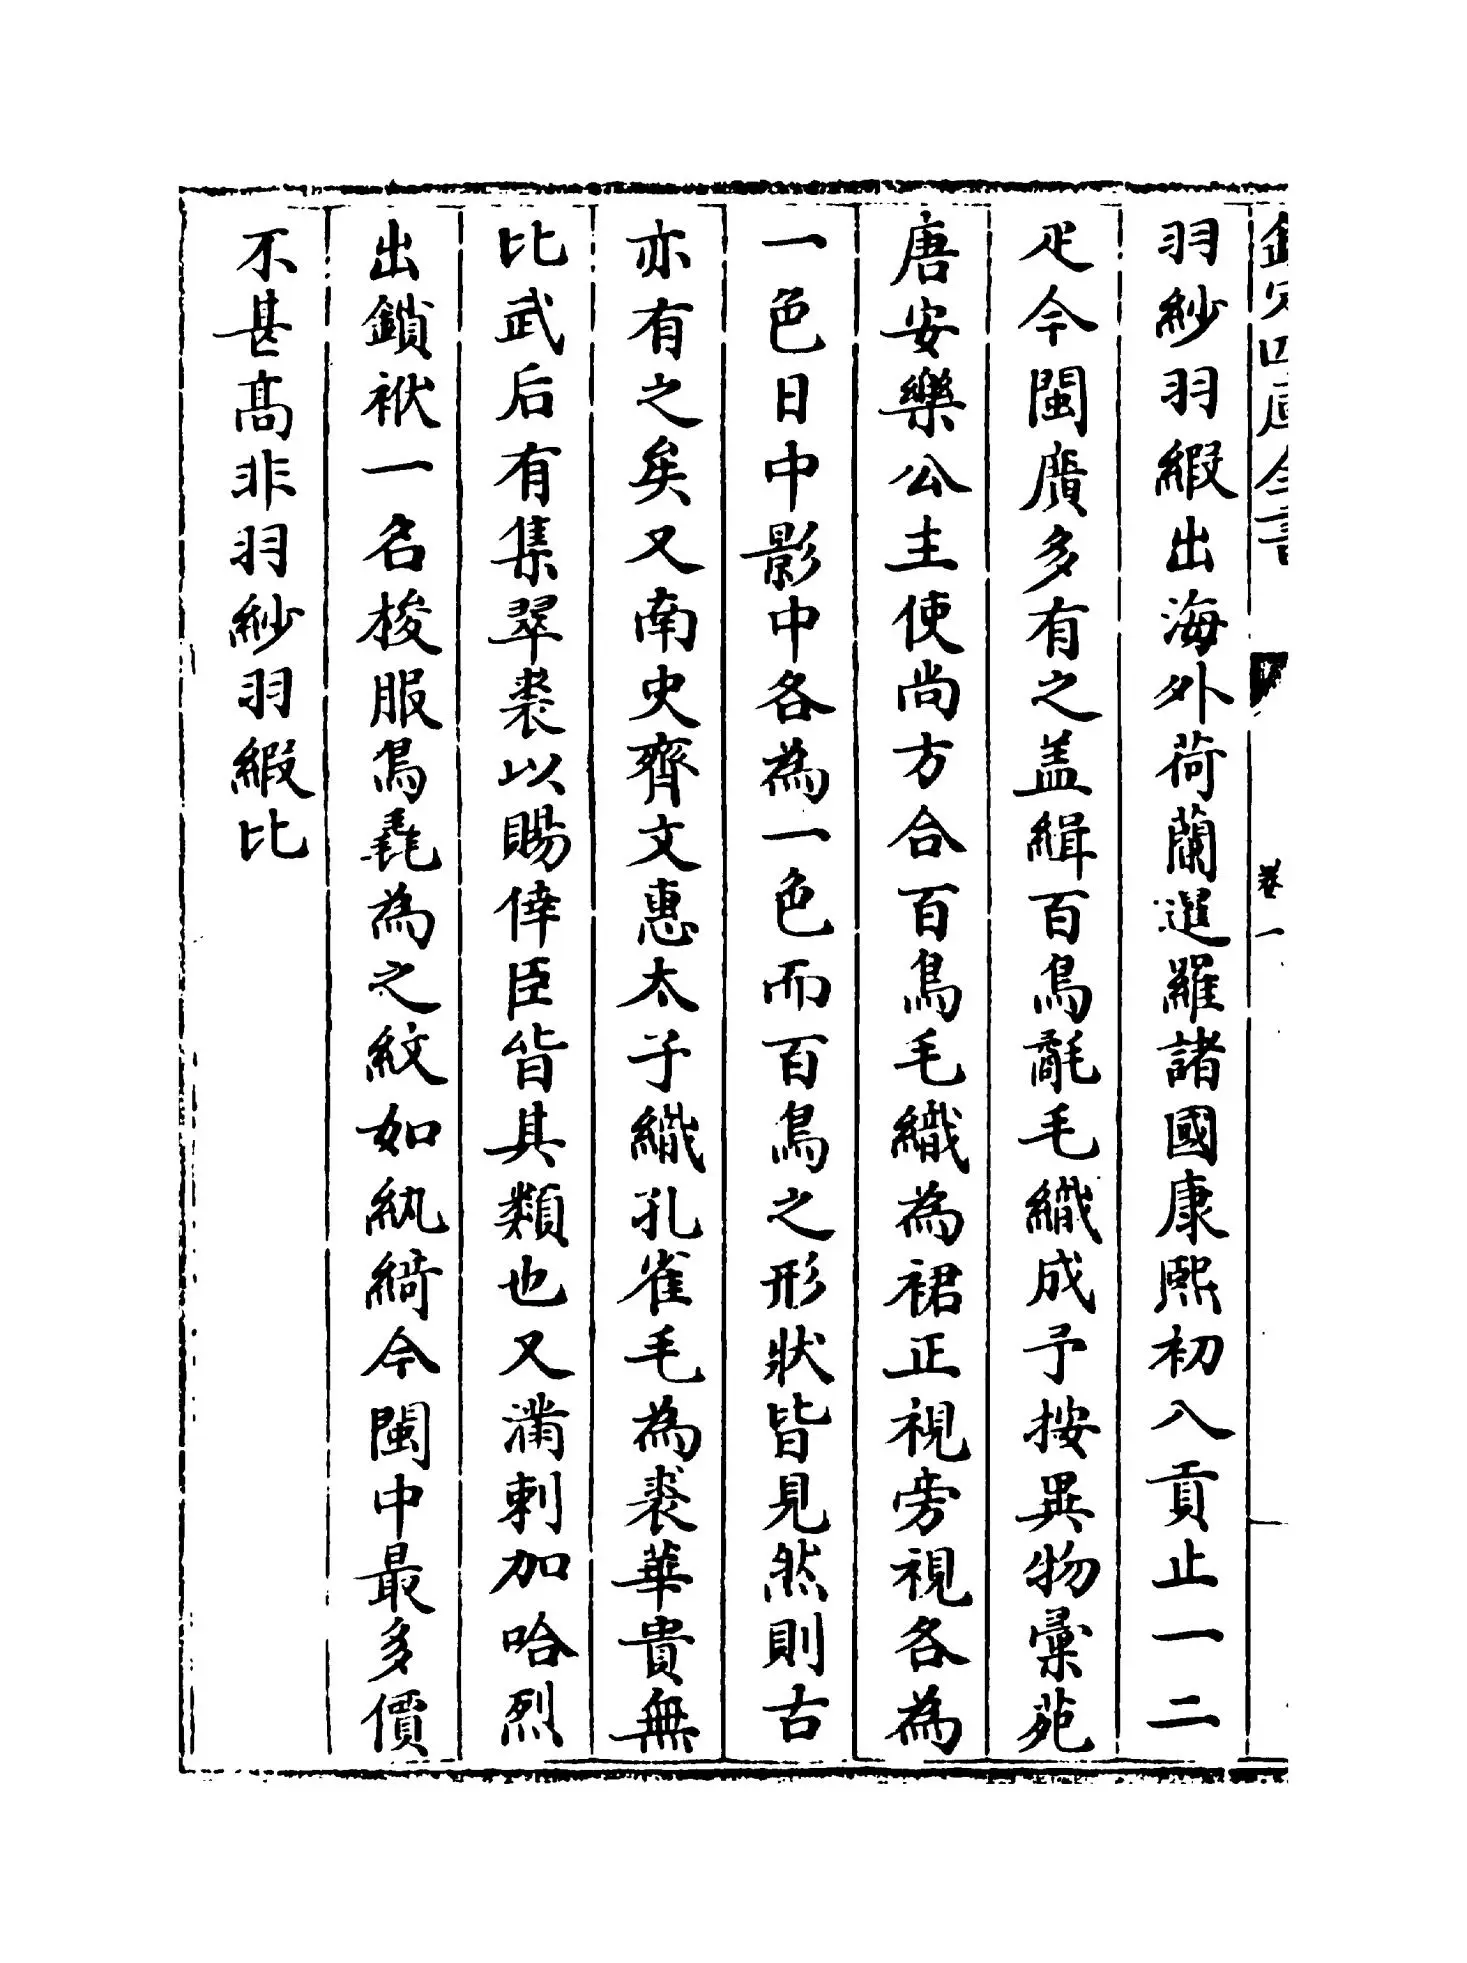 欽定四庫全書
卷一
羽紗羽緞出海外荷蘭暹羅諸國康熙初入貢止一二
疋今閩廣多有之盖緝百鳥氄毛織成予按異物彙苑
唐安樂公主使尚方合百鳥毛織為裙正視旁視各為
一色日中影中各為一色而百鳥之形狀皆見然則古
亦有之矣又南史齊文惠太子織孔雀毛為裘華貴無
比武后有集翠裘以賜倖臣皆其類也又滿剌加哈烈
出鎖袱一名梭服鳥毳為之紋如紈綺今閩中最多價
不甚髙非羽紗羽緞比